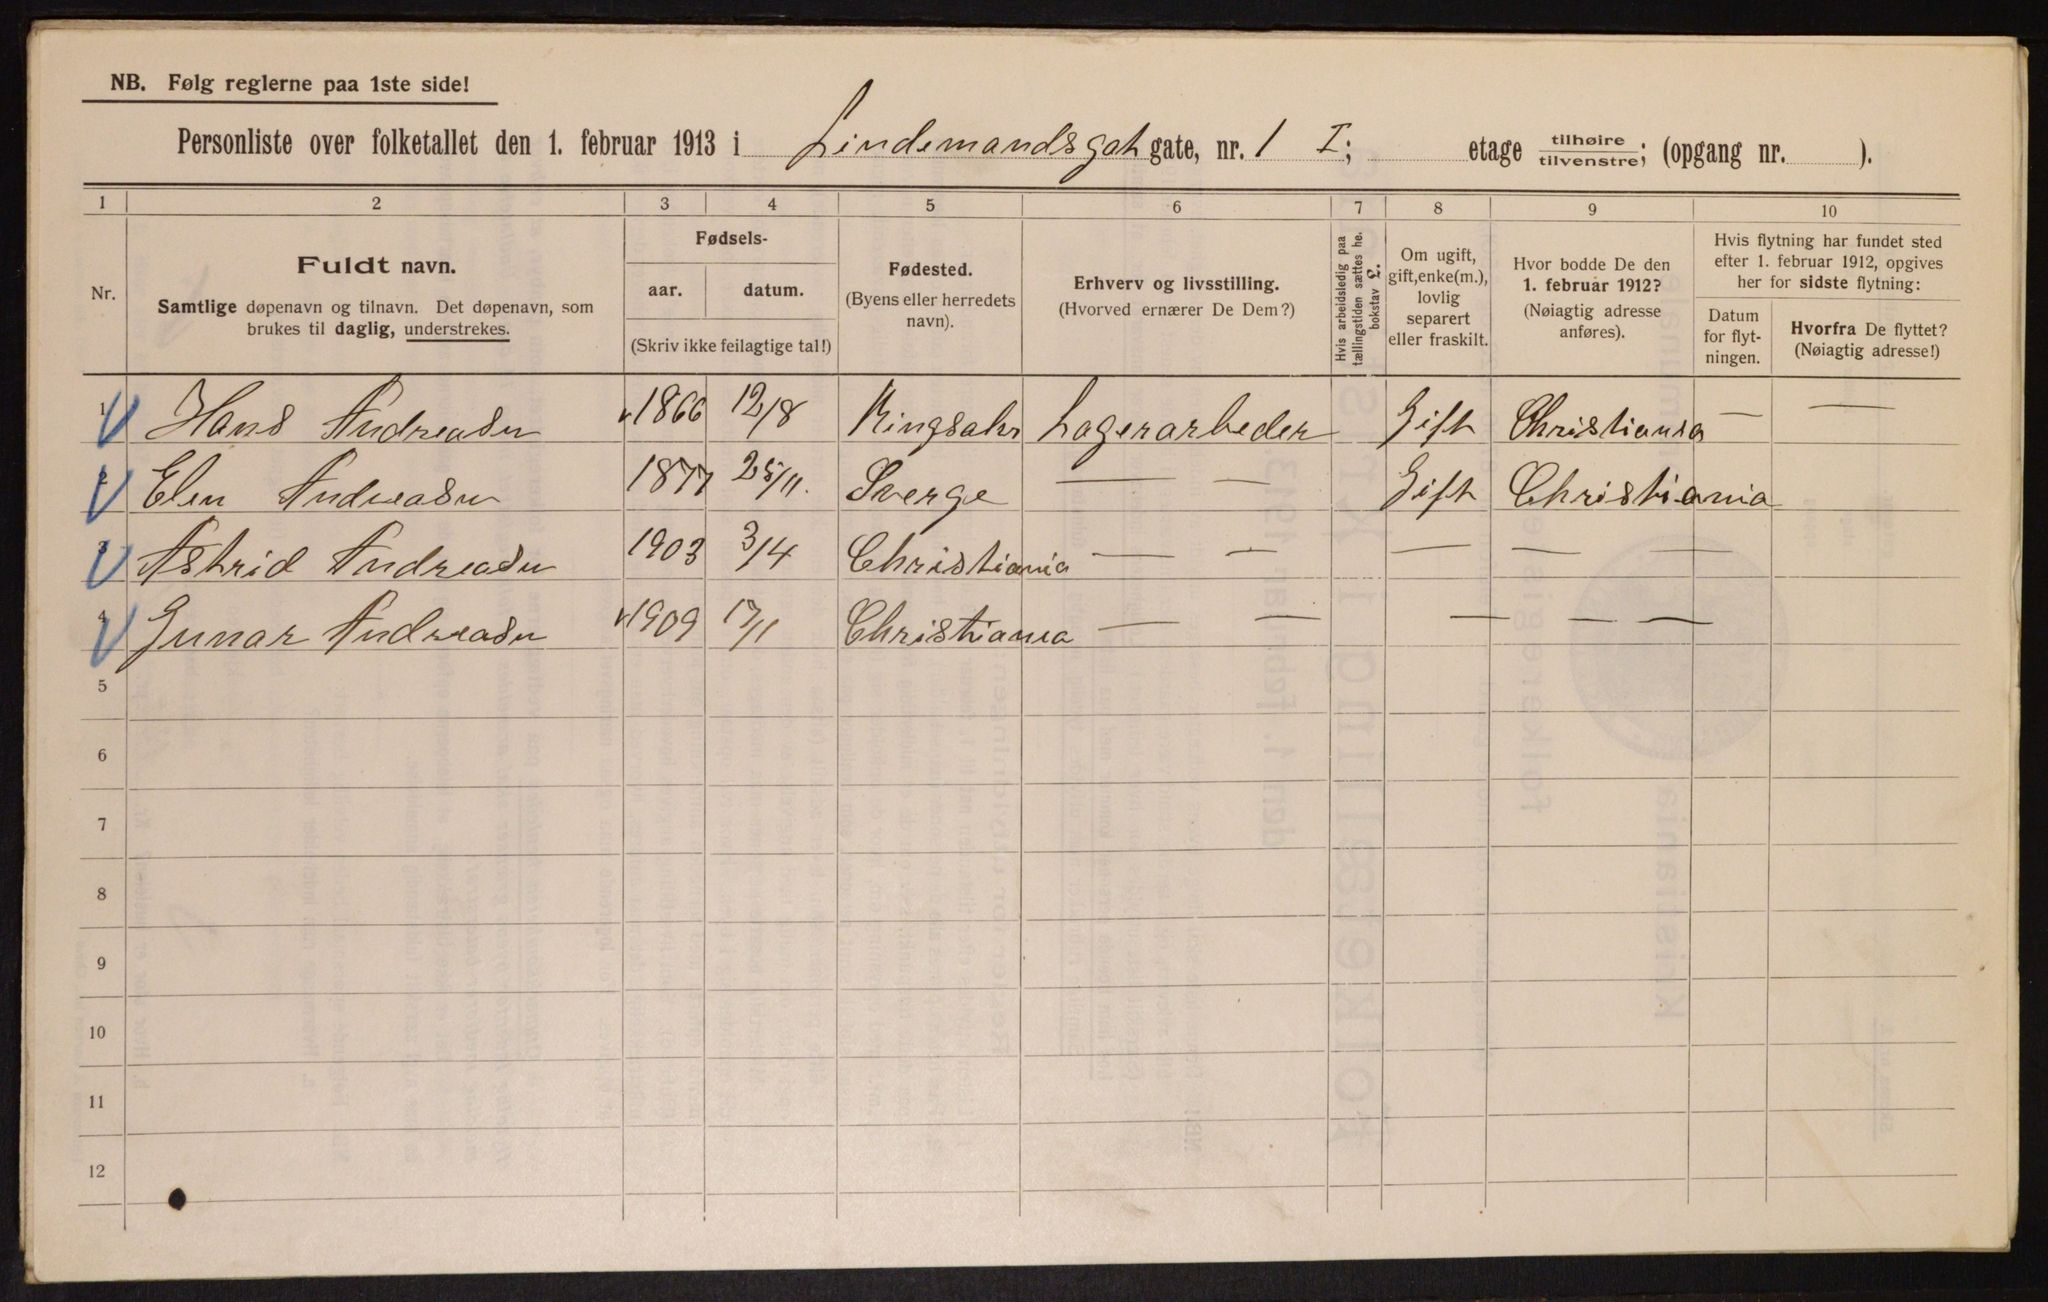 NB. Følg reglerne paa 1ste side!
Personliste over folketallet den 1. februar 1913 i Lindemandsgah gate, nr. 1 I; etage tilhøire tilvenstre; (opgang nr. ).
1 2 3 4 5 6 7 8 9 10
Nr.
Fuldt navn.
Samtlige døpenavn og tilnavn. Det døpenavn, som
brukes til daglig, understrekes.
Fødsels-
aar. datum.
(Skriv ikke feilagtige tal!)
Fødested.
(Byens eller herredets
navn).
Erhverv og livsstilling.
(Hvorved ernærer De Dem?)
Hvis arbeidsledig paa
tællingstiden sættes he.
bokstav L.
Om ugift,
gift, enke(m.),
lovlig
separert
eller fraskilt.
Hvor bodde De den
1. februar 1912?
(Nøiagtig adresse
anføres).
Hvis flytning har fundet sted
efter 1. februar 1912, opgives
her for sidste flytning:
Datum
for flyt-
ningen.
Hvorfra De flyttet?
(Nøiagtig adresse!)
1 Hans Andreasen 1866 12/8 Ringsaker Lagerarbeder Gift Christiania — —
2 Elen Andreasen 1877 25/11. Sverge — — Gift Christiania
3 Astrid Andreasen 1903 3/4 Christiania — — — — —
4 Gunar Andreasen 1909 17/11 Christiania — — — — —
5
6
7
8
9
10
11
12